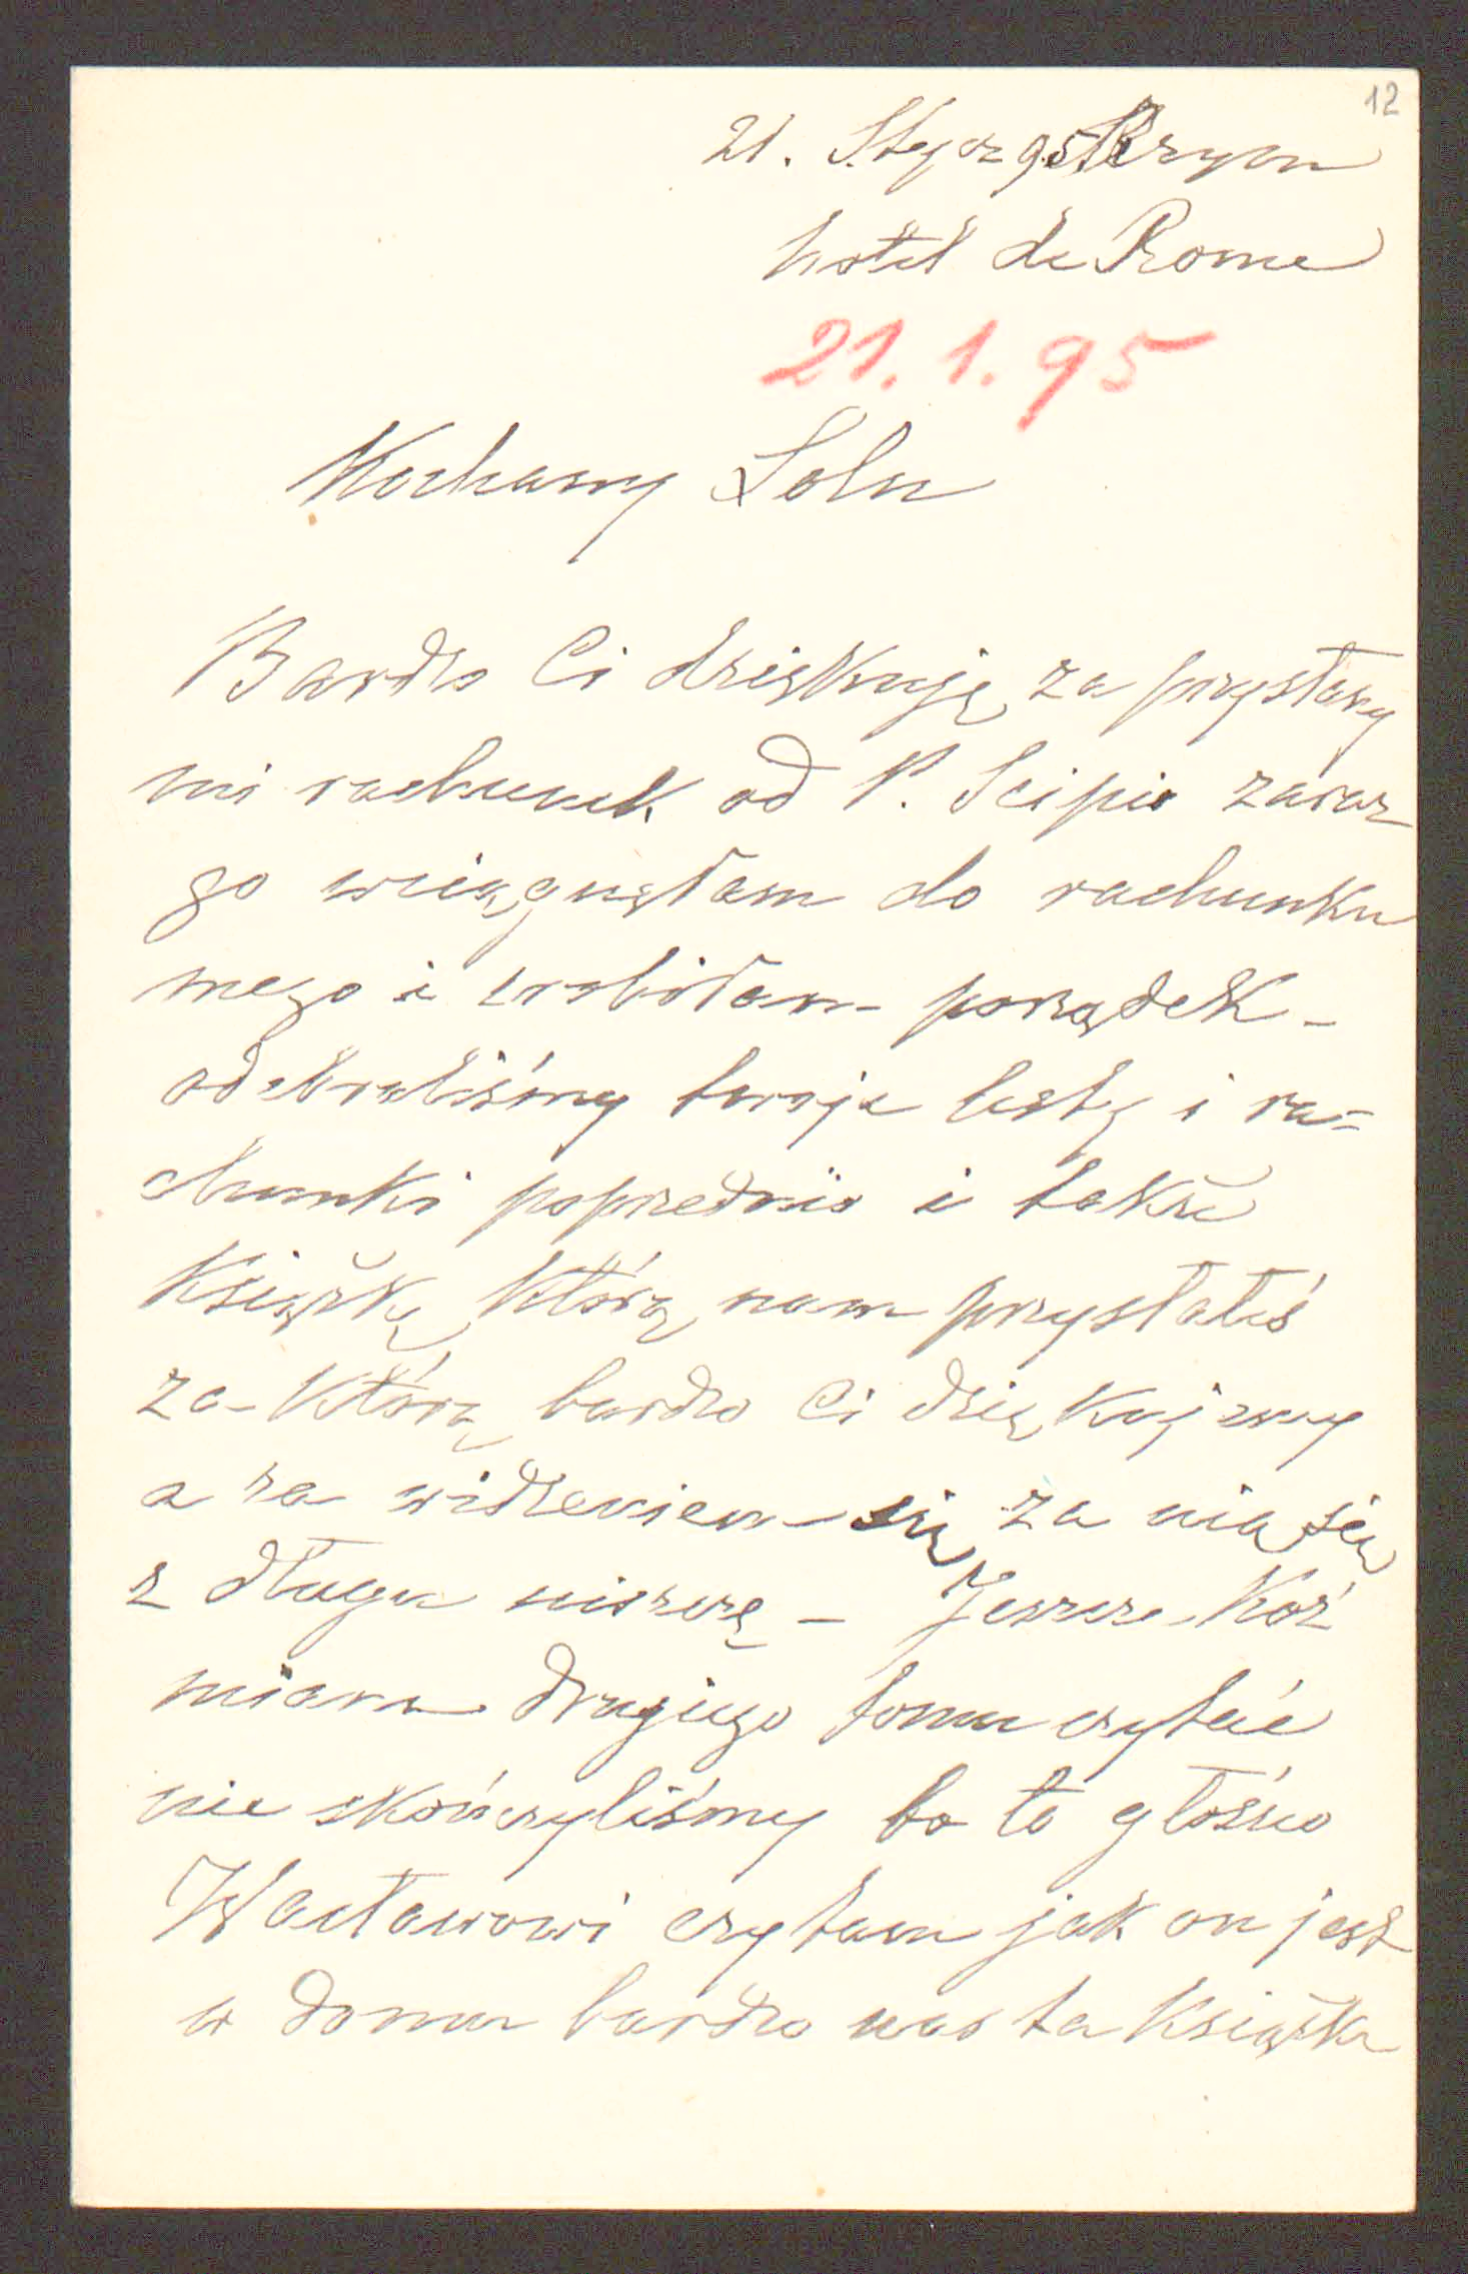 12
21. Stycz 95 Rzym
hotel de Rome
21. 1. 95
Kochany Lolu
Bardzo Ci dziękuję za przysłany
mi rachunek od P. Scipio zaraz
go wciągnęłam do rachunku
mego i zrobiłam porządek -
odebraliśmy twoje listy i ra=
chunki poprzednio i także
Książkę którą nam przysłałeś
za którą bardzo Ci dziękujemy
a za widzeniem się za nią się
z długu uiszczę - Jeszcze Koź
miana drugiego tomu czytać
nie skończyliśmy bo to głośno
Wacławowi czytam jak on jest
w domu bardzo nas ta Książka